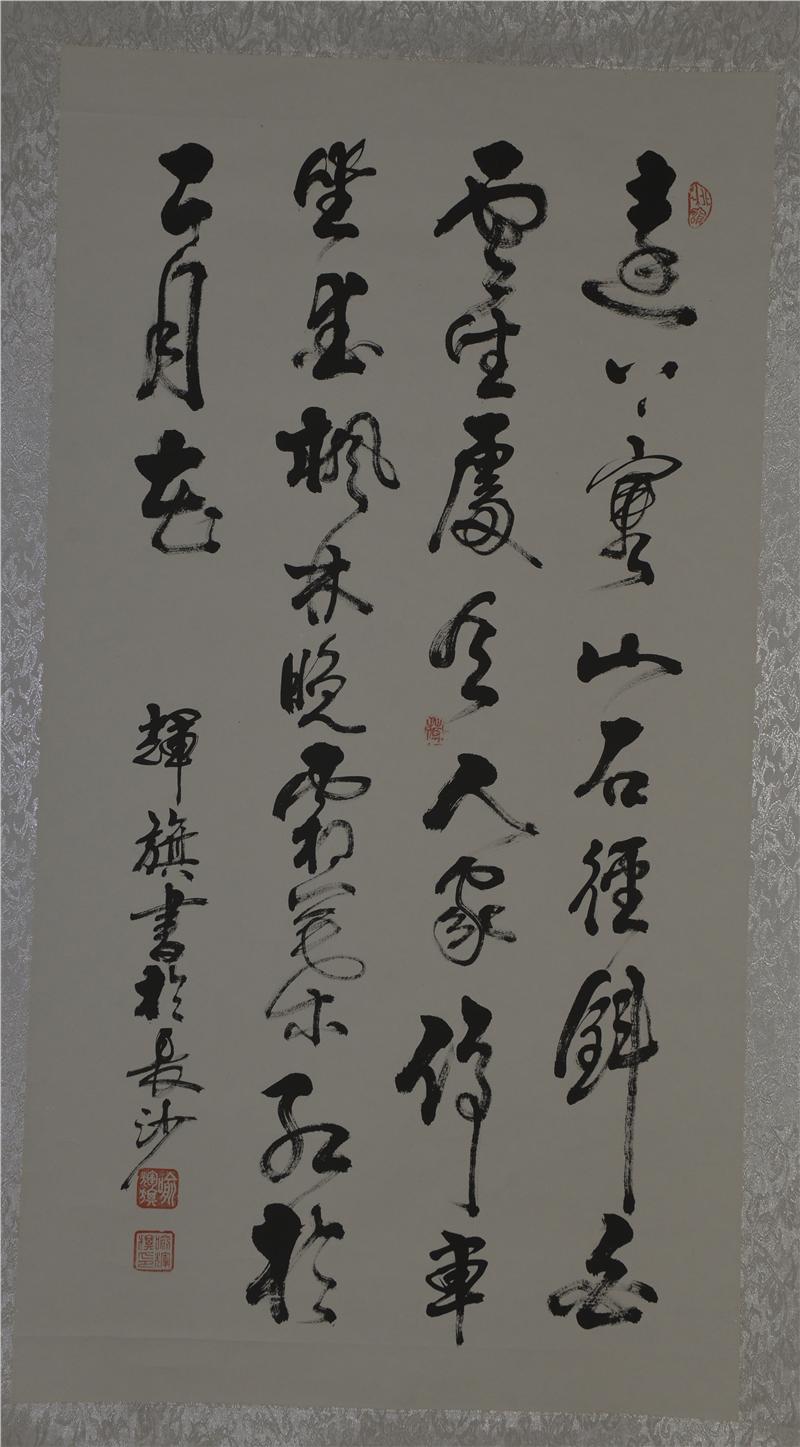 遠上寒山石徑斜白
雲生處有人家停車
坐愛楓林晚霜葉紅於
二月花
輝旗書於長沙
喻輝旗
喻輝旗印